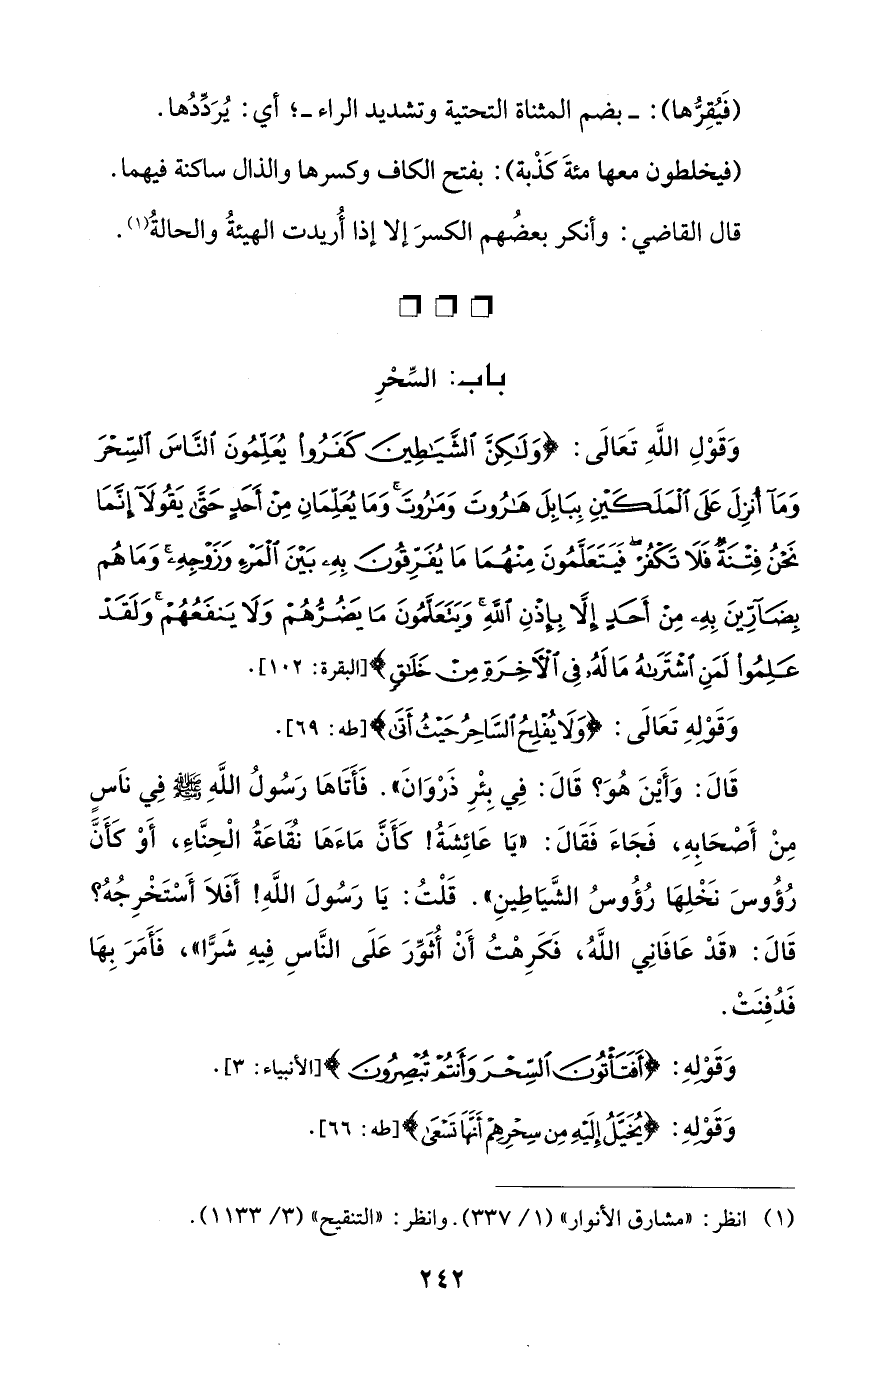 (فَيُقِرُّها): ـ بضم المثناة التحتية وتشديد الراء ـ؛ أي: يُرَدِّدُها.
(فيخلطون معها مئةَ كَذْبة): بفتح الكاف وكسرها والذال ساكنة فيهما.
قال القاضي: وأنكر بعضُهم الكسرَ إلا إذا أُريدت الهيئةُ والحالةُ(١).
باب: السِّحْرِ
وَقَوْلِ اللَّهِ تَعَالَى: ﴿وَلَٰكِنَّ ٱلشَّيَٰطِينَ كَفَرُوا۟ يُعَلِّمُونَ ٱلنَّاسَ ٱلسِّحْرَ
وَمَآ أُنزِلَ عَلَى ٱلْمَلَكَيْنِ بِبَابِلَ هَٰرُوتَ وَمَٰرُوتَ ۚ وَمَا يُعَلِّمَانِ مِنْ أَحَدٍ حَتَّىٰ يَقُولَآ إِنَّمَا
نَحْنُ فِتْنَةٌ فَلَا تَكْفُرْ ۖ فَيَتَعَلَّمُونَ مِنْهُمَا مَا يُفَرِّقُونَ بِهِۦ بَيْنَ ٱلْمَرْءِ وَزَوْجِهِۦ ۚ وَمَا هُم
بِضَآرِّينَ بِهِۦ مِنْ أَحَدٍ إِلَّا بِإِذْنِ ٱللَّهِ ۚ وَيَتَعَلَّمُونَ مَا يَضُرُّهُمْ وَلَا يَنفَعُهُمْ ۚ وَلَقَدْ
عَلِمُوا۟ لَمَنِ ٱشْتَرَىٰهُ مَا لَهُۥ فِى ٱلْآخِرَةِ مِنْ خَلَٰقٍ﴾ [البقرة: ١٠٢].
وَقَوْلِهِ تَعَالَى: ﴿وَلَا يُفْلِحُ ٱلسَّاحِرُ حَيْثُ أَتَىٰ﴾ [طه: ٦٩].
قَالَ: وَأَيْنَ هُوَ؟ قَالَ: فِي بِئْرِ ذَرْوَانَ». فَأَتَاهَا رَسُولُ اللَّهِ ﷺ فِي نَاسٍ
مِنْ أَصْحَابِهِ، فَجَاءَ فَقَالَ: «يَا عَائِشَةُ! كَأَنَّ مَاءَهَا نُقَاعَةُ الْحِنَّاءِ، أَوْ كَأَنَّ
رُؤُوسَ نَخْلِهَا رُؤُوسُ الشَّيَاطِينِ». قُلْتُ: يَا رَسُولَ اللَّهِ! أَفَلاَ أَسْتَخْرِجُهُ؟
قَالَ: «قَدْ عَافَانِي اللَّهُ، فَكَرِهْتُ أَنْ أُثَوِّرَ عَلَى النَّاسِ فِيهِ شَرًّا»، فَأَمَرَ بِهَا
فَدُفِنَتْ.
وَقَوْلِهِ: ﴿أَفَتَأْتُونَ ٱلسِّحْرَ وَأَنتُمْ تُبْصِرُونَ﴾ [الأنبياء: ٣].
وَقَوْلِهِ: ﴿يُخَيَّلُ إِلَيْهِ مِن سِحْرِهِمْ أَنَّهَا تَسْعَىٰ﴾ [طه: ٦٦].
(١) انظر: «مشارق الأنوار» (١/ ٣٣٧). وانظر: «التنقيح» (٣/ ١١٣٣).
٢٤٢